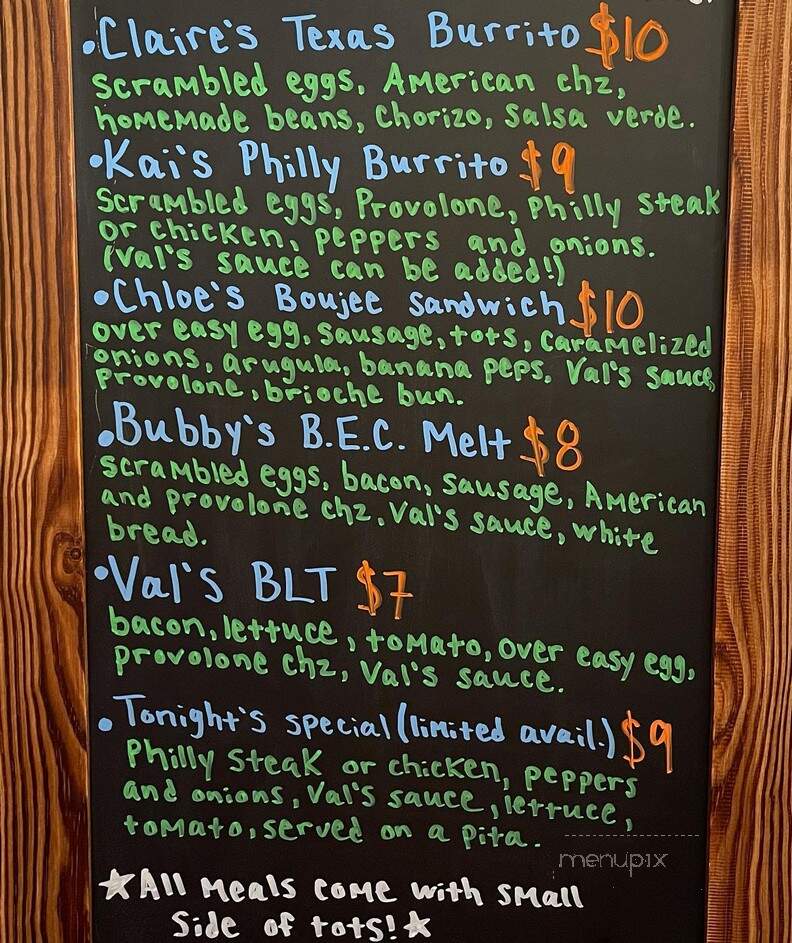 •Claire's Texas Burrito $10
scrambled eggs, American chz,
homemade beans, Chorizo, Salsa verde.
•Kai's Philly Burrito $9
Scrambled eggs, Provolone, Philly Steak
or chicken, peppers and onions.
(Val's sauce can be added!)
•Chloe's Boujee Sandwich $10
over easy egg, sausage, tots, caramelized
onions, arugula, banana peps. Val's sauce,
provolone, brioche bun.
•Bubby's B.E.C. Melt $8
scrambled eggs, bacon, sausage, American
and provolone chz, Val's sauce, white
bread.
•Val's BLT $7
bacon, lettuce, tomato, over easy egg,
provolone chz, Val's sauce.
•Tonight's special (limited avail.) $9
Philly Steak or chicken, peppers
and onions, Val's sauce, lettuce,
tomato, served on a pita.
menupix
★All meals come with small
side of tots!★